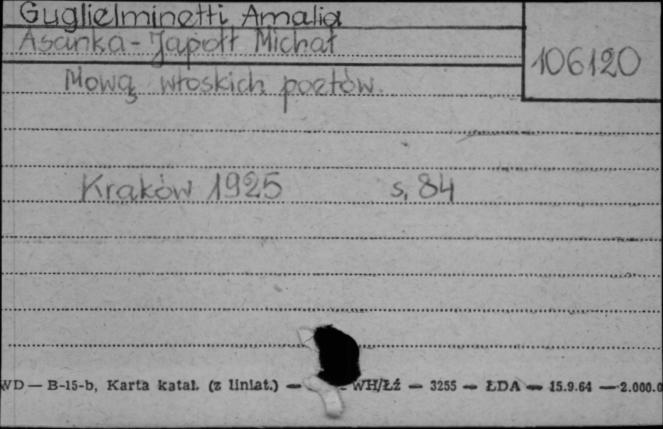 Guglielminetti Amalia
Asanka-Japołł Michał
106120
Mową włoskich poetów.
Kraków 1925 s. 84
WD — B-15-b, Karta katal. (z liniat.) — WH/Łź — 3255 — ŁDA — 15.9.64 — 2.000.0